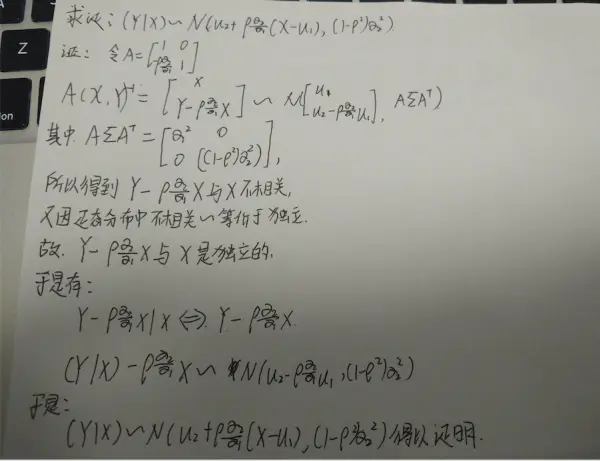 Z
求证: (Y|X)~N(u₂+ρσ₂/σ₁(X-u₁), (1-ρ²)σ₂²)
证: 令A=[1 0; -ρσ₂/σ₁ 1]
A(X,Y)ᵀ=[X; Y-ρσ₂/σ₁X] ~ N([u₁; u₂-ρσ₂/σ₁u₁], AΣAᵀ)
其中 AΣAᵀ=[σ₁² 0; 0 (1-ρ²)σ₂²],
所以得到 Y-ρσ₂/σ₁X 与X不相关,
又因正态分布中不相关~等价于独立.
故. Y-ρσ₂/σ₁X 与 X 是独立的.
于是有:
Y-ρσ₂/σ₁X|X ⇔ Y-ρσ₂/σ₁X.
(Y|X)-ρσ₂/σ₁X ~ N(u₂-ρσ₂/σ₁u₁, (1-ρ²)σ₂²)
于是:
(Y|X)~N(u₂+ρσ₂/σ₁(X-u₁), (1-ρ²)σ₂²)得以证明.